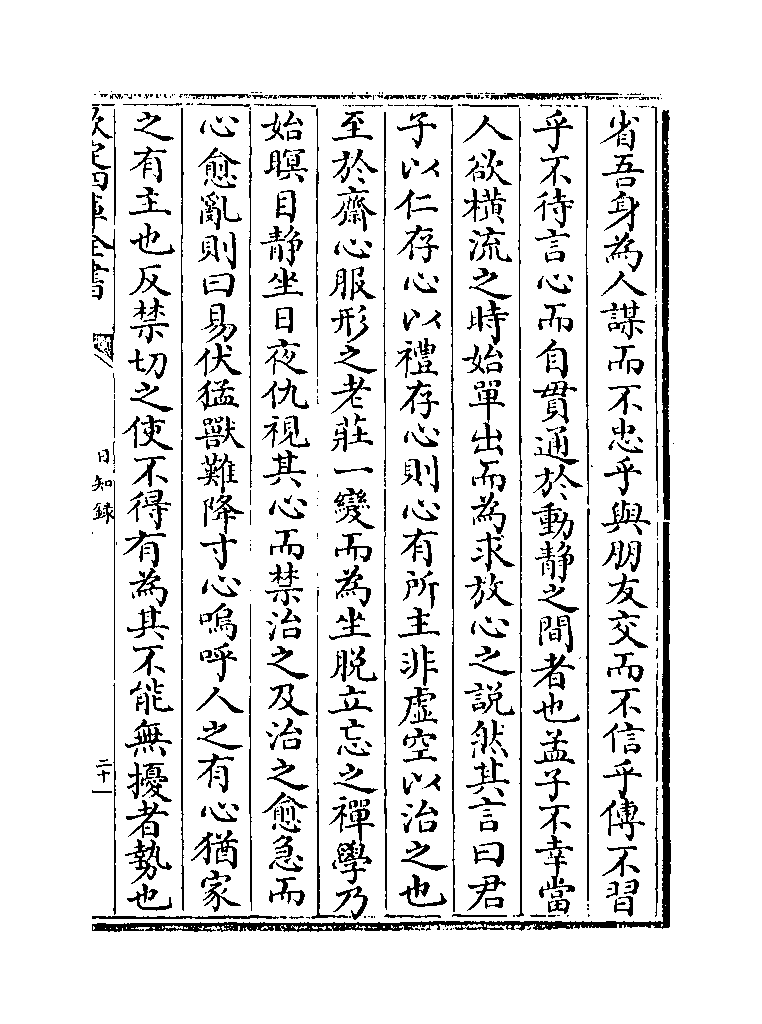 省吾身為人謀而不忠乎與朋友交而不信乎傳不習
乎不待言心而自貫通於動靜之間者也孟子不幸當
人欲橫流之時始單出而為求放心之説然其言曰君
子以仁存心以禮存心則心有所主非虛空以治之也
至於齋心服形之老莊一變而為坐脱立忘之禪學乃
始瞑目静坐日夜仇視其心而禁治之及治之愈急而
心愈亂則曰易伏猛獸難降寸心嗚呼人之有心猶家
之有主也反禁切之使不得有為其不能無擾者勢也
欽定四庫全書
日知錄
二十一